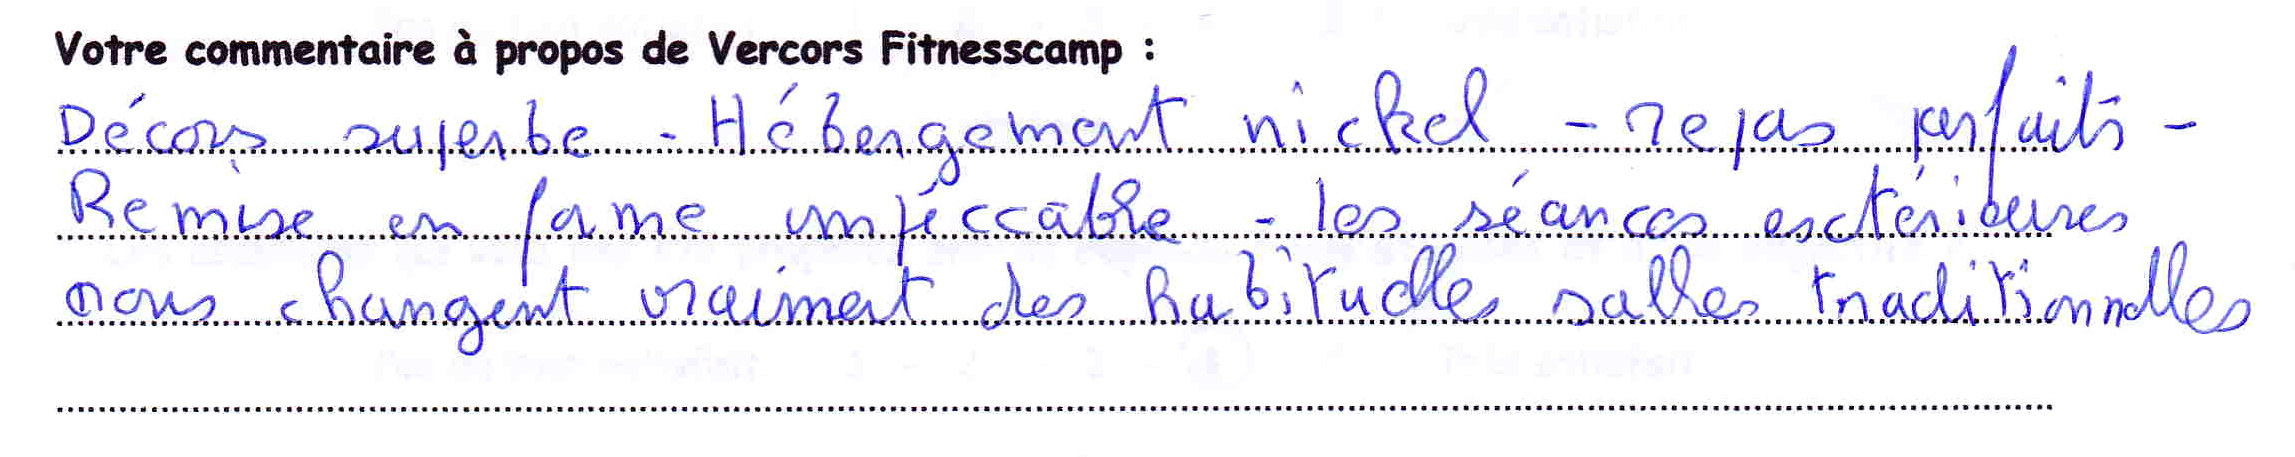 Votre commentaire à propos de Vercors Fitnesscamp :
Décors superbe - Hébergement nickel - repas parfaits -
Remise en forme impéccable - les séances exctérieures
nous changent vraiment des habituelles salles traditionnelles